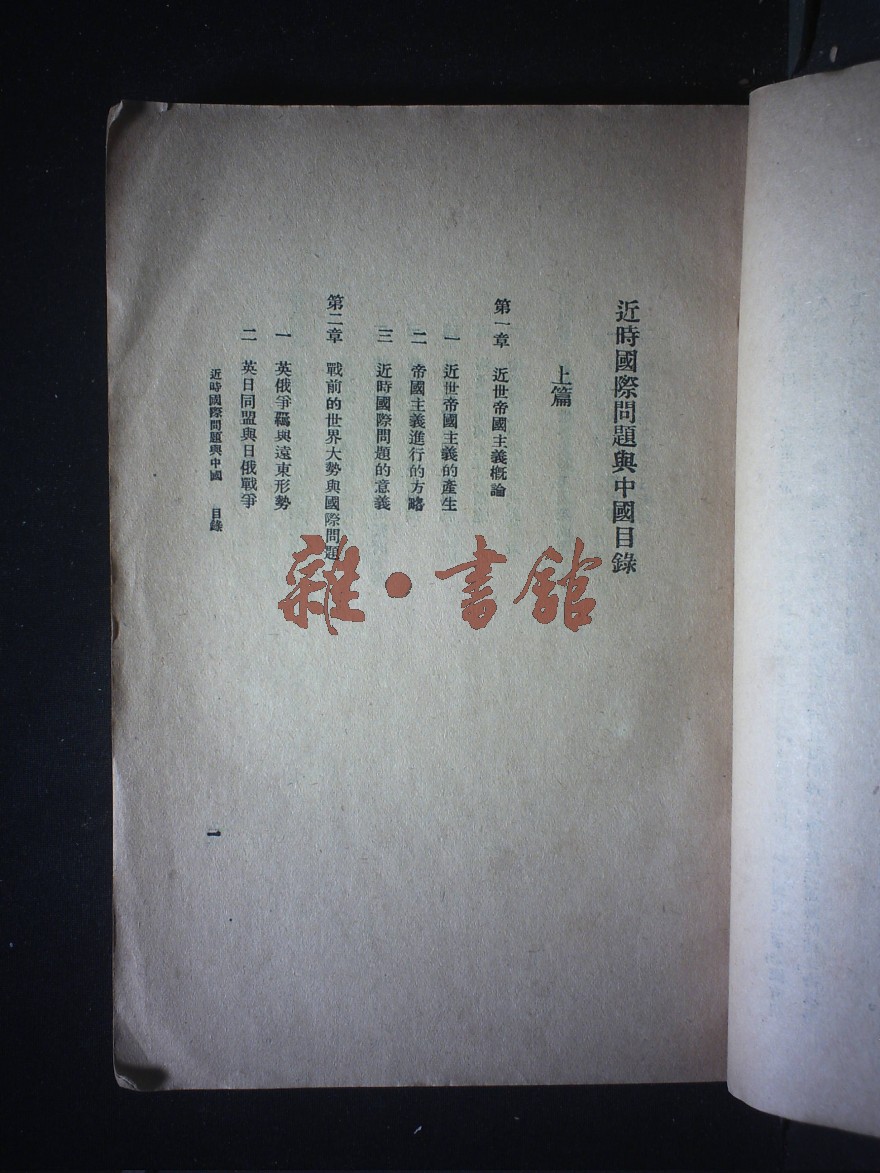 近時國際問題與中國目錄
上篇
第一章 近世帝國主義概論
一 近世帝國主義的產生
二 帝國主義進行的方略
三 近時國際問題的意義
第二章 戰前的世界大勢與國際問題
一 英俄爭霸與遠東形勢
二 英日同盟與日俄戰爭
近時國際問題與中國 目錄
一
雜·書館